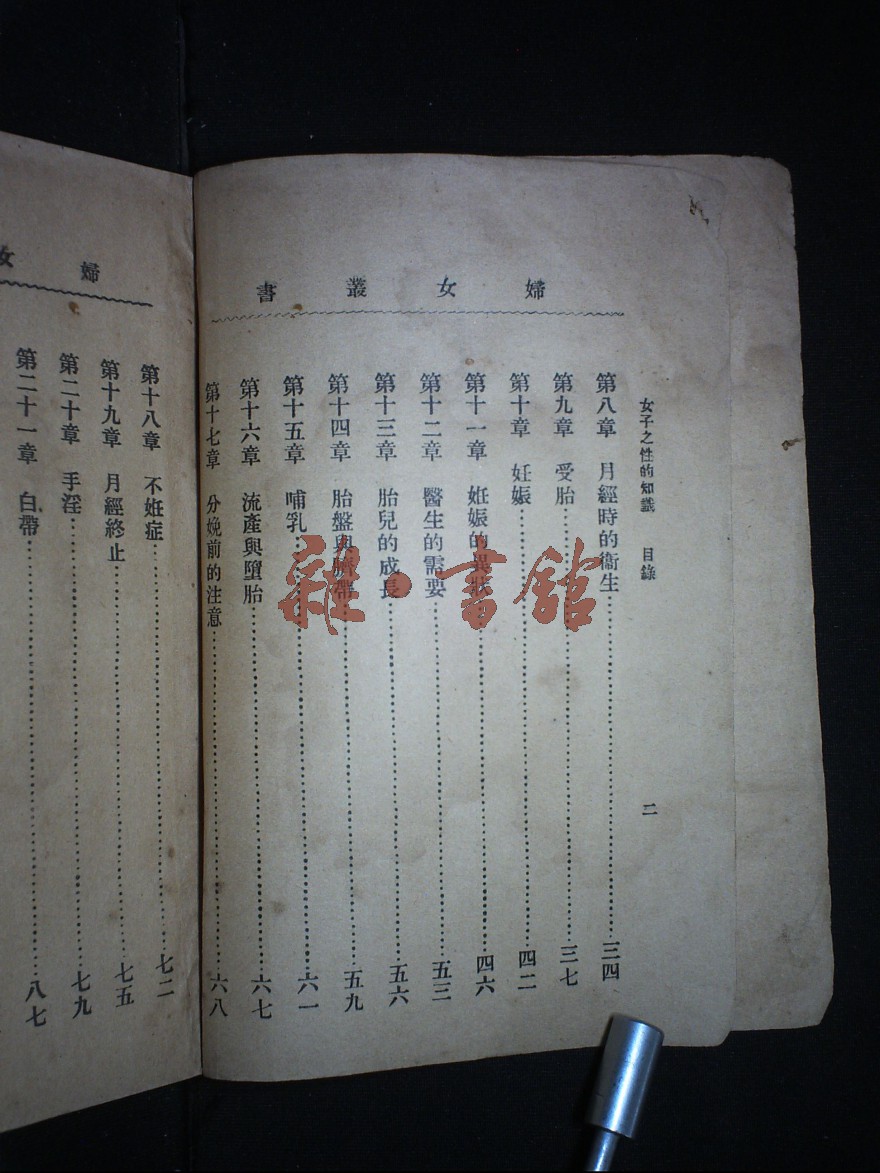 婦女叢書
女子之性的知識 目錄
二
第八章 月經時的衞生……三四
第九章 受胎……三七
第十章 妊娠……四二
第十一章 妊娠的異狀……四六
第十二章 醫生的需要……五三
第十三章 胎兒的成長……五六
第十四章 胎盤與臍帶……五九
第十五章 哺乳……六一
第十六章 流產與墮胎……六七
第十七章 分娩前的注意……六八
婦女
第十八章 不妊症……七二
第十九章 月經終止……七五
第二十章 手淫……七九
第二十一章 白帶……八七
雜·書館